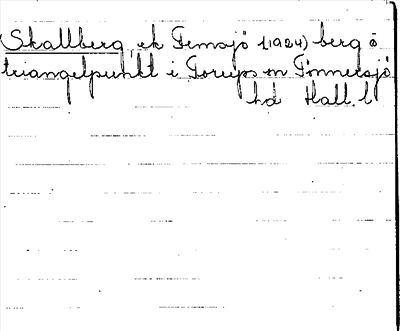 Skallberg ek Femsjö (1924) berg o
triangelpunkt i Torups sn Tönnersjö
hd Hall. l